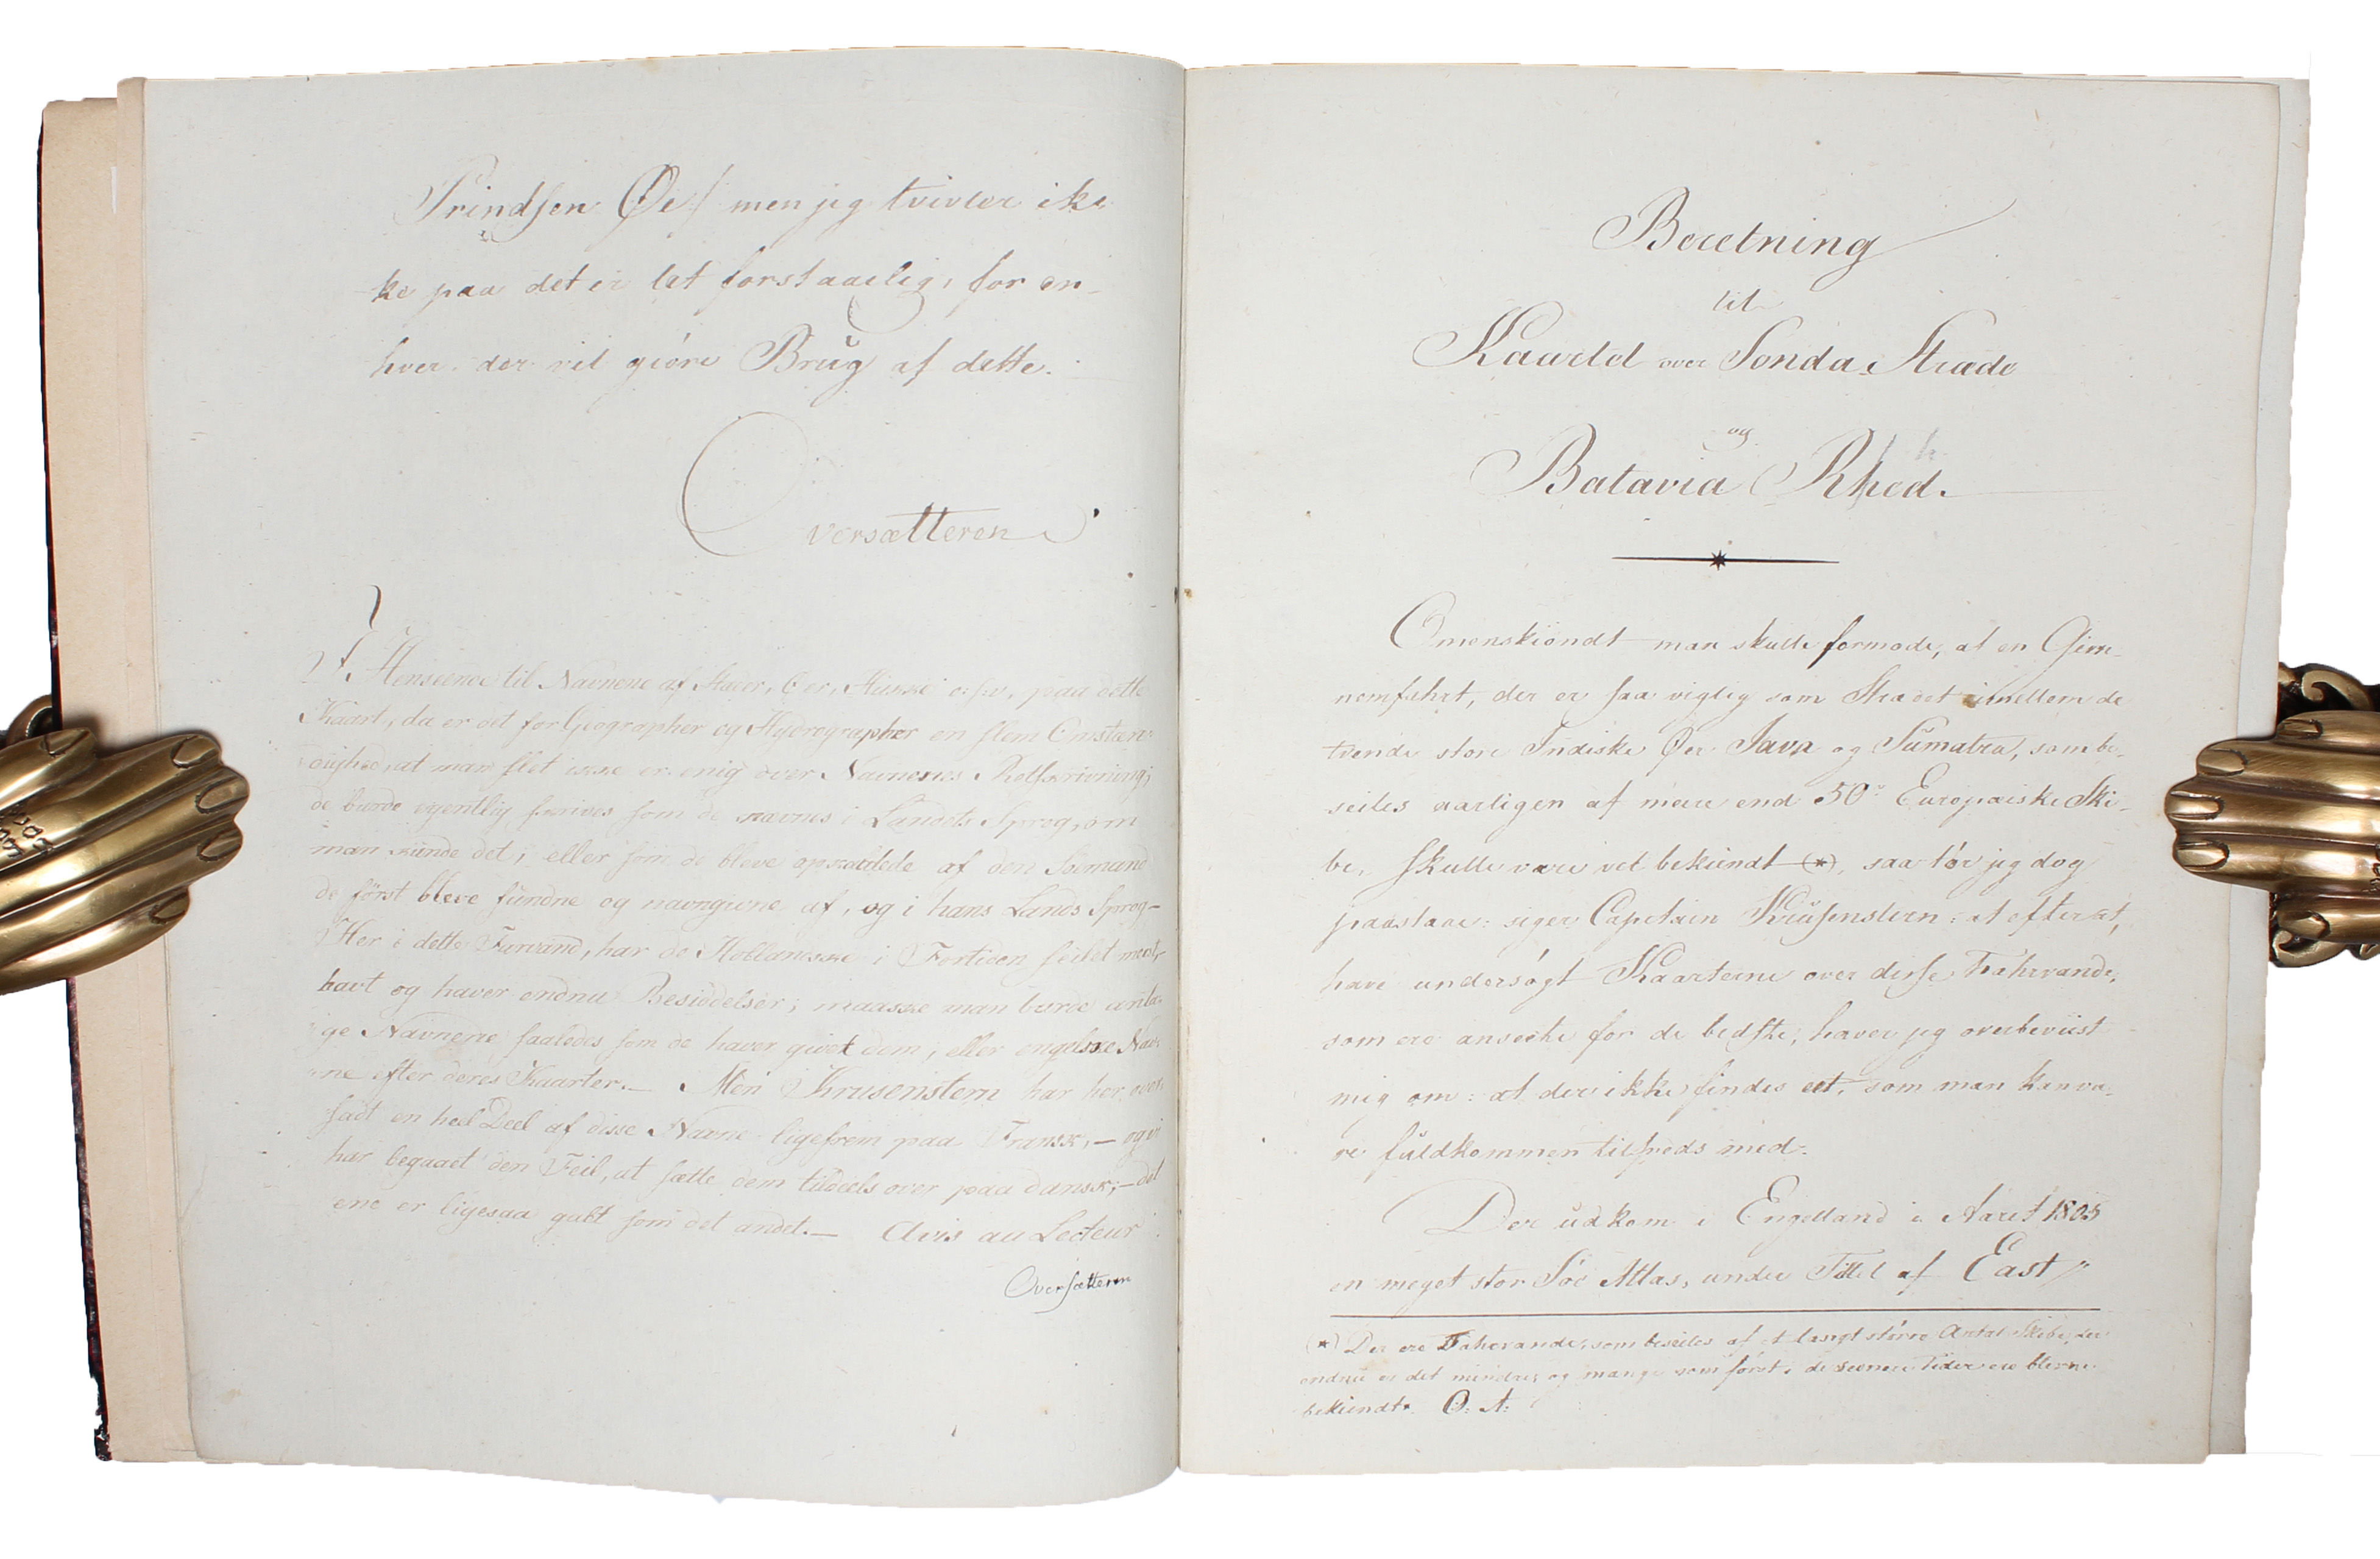 Prindsen Øe/ men jeg tvivler ik-
ke paa det er let forstaaelig, for en-
hver der vil giöre Brug af dette.
Oversætteren
I Henseende til Navnene af Stæder, Öer, Skiær o:s:v, paa dette
Kaart, da er det for Geographer og Hydrographer en slem Omstæn-
dighed, at man slet ikke er enig over Navnenes Retskrivning;
de burde egentlig skrives som de nævnes i Landets Sprog, om
man kunde det; eller som de bleve opkaldede af den Sömand
de först bleve fundne og navngivne af, og i hans Lands Sprog-
Her i dette Farvand, har de Hollandske i Fortiden seilet mest,
havt og haver endnu Besiddelser; maaskee man burde anta-
ge Navnene saaledes som de haver givet dem, eller engelske Nav-
ne efter deres Kaarter.— Men Krusenstern har her over
sadt en heel Deel af disse Navne ligefrem paa Fransk,— og vi
har begaaet den Feil, at sætte dem tildeels over paa dansk;— det
ene er ligesaa galt som det andet.— Avis au Lecteur
Oversætteren
Beretning
til
Kaartet over Sonda-Stræde
og
Batavia Rhed.
Omenskiöndt man skulle formode, at en Giæn-
nemfahrt, der er saa vigtig som Strædet imellem de
tvende store Indiske Øer Java og Sumatra, som be-
seiles aarligen af mere end 50 Europæiske Ski-
be, skulle være vel bekiendt (*), saa tör jeg dog
paastaae: siger Capitain Krüsenstern: at efter at,
have undersögt Kaarterne over disse Fahrvande,
som ere anseete for de bedste, haver jeg overbeviist
mig om: at der ikke findes eet, som man kan væ-
re fuldkommen tilfreds med.
Der udkom i Engelland i Aaret 1805
en meget stor Söe Atlas, under Titel af East
(*) Der ere Fahrvande, som beseiles af et langt större Antal Skibe, der
endnu er det mindre, og mange som först i de seenere Tider ere blevne
bekiendte. O: A: